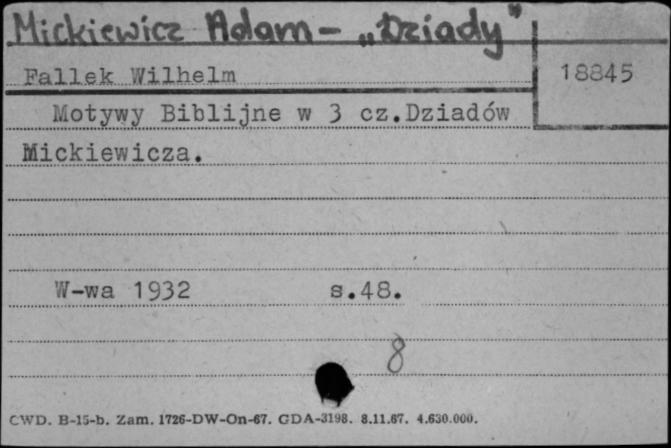 Mickiewicz Adam – „Dziady”
Fallek Wilhelm
18845
Motywy Biblijne w 3 cz.Dziadów
Mickiewicza.
W-wa 1932 s.48.
8
CWD. B-15-b. Zam. 1726-DW-On-67. GDA-3198. 8.11.67. 4.630.000.